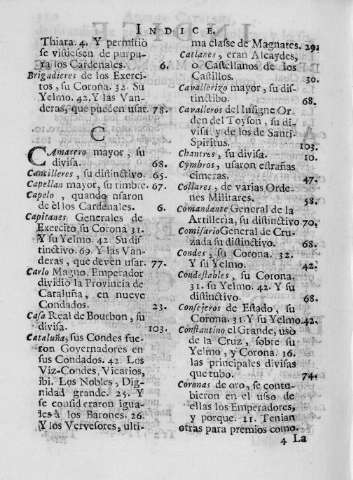 INDICE.
Thiara. 4. Y permitiò
se vistiessen de purpu-
ra los Cardenales. 6.
Brigadieres de los Exerci-
tos, su Corona. 32. Su
Yelmo. 42. Y las Van-
deras, que pueden usar. 78.
C
CAmarero mayor, su
divisa. 68.
Camilleres, su distinctivo. 65.
Capellan mayor, su timbre. 67.
Capelo, quando usaron
de èl los Cardenales. 6.
Capitanes Generales de
Exercito su Corona 31.
Y su Yelmo. 42. Su dis-
tinctivo. 69. Y las Van-
deras, que deven usar. 77.
Carlo Magno. Emperador
dividio la Provincia de
Cataluña, en nueve
Condados. 23.
Casa Real de Bourbon, su
divisa. 103.
Cataluña, sus Condes fue-
ron Governadores en
sus Condados. 42. Los
Viz-Condes, Vicarios,
ibi. Los Nobles, Dig-
nidad grande. 25. Y
se consideraron igua-
les à los Barones. 26.
Y los Vervesores, ulti-
ma classe de Magnates. 29.
Catlanes, eran Alcaydes,
o Castellanos de los
Castillos. 30.
Cavallerizo mayor, su dis-
tinctibo. 68.
Cavalleros del Insigne Or-
den del Toyson, su di-
visa. y de los de Sancti-
Spiritus. 103.
Chantres, su divisa. 10.
Cymbros, usaron estrañas
cimeras. 47.
Collares, de varias Orde-
nes Militares. 58.
Comandante General de la
Artilleria, su distinctivo 70.
Comisario General de Cru-
zada su distinctivo. 68.
Condes, su Corona. 32.
Y su Yelmo. 42.
Condestables, su Corona.
31. su Yelmo. 42. Y su
distinctivo. 68.
Consejeros de Estado, su
Corona. 31. Y su Yelmo. 42.
Constantino el Grande, usò
de la Cruz, sobre su
Yelmo, y Corona. 16.
las principales divisas
que tubo. 74.
Coronas de oro, se contu-
bieron en el usso de
ellas los Emperadores,
y porque. 11. Tenian
otras para premios como.
4 La